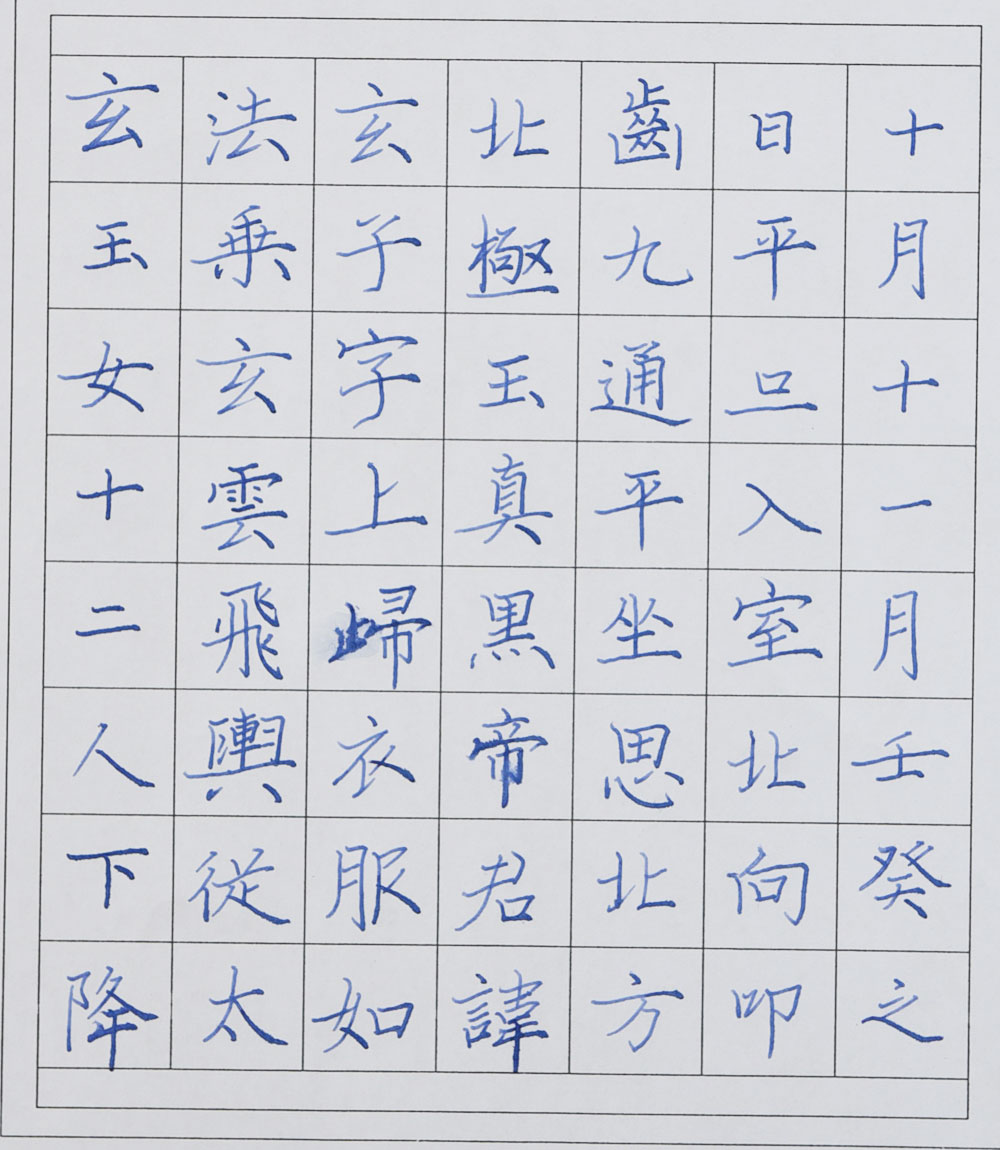 十月十一月壬癸之
日平旦入室北向叩
齒九通平坐思北方
北極玉真黒帝君諱
玄子字上歸衣服如
法乗玄雲飛輿從太
玄玉女十二人下降